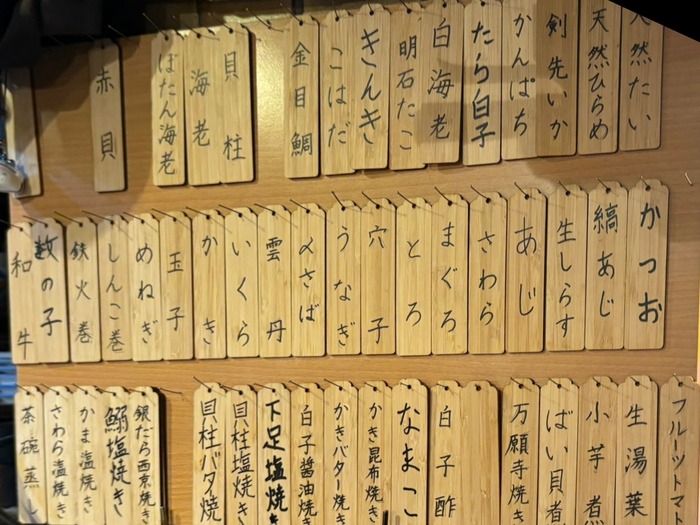 然たい
天然ひらめ
剣先いか
かんぱち
たら白子
白海老
明石たこ
きんき
こはだ
金目鯛
貝柱
海老
ぼたん海老
赤貝
かつお
縞あじ
生しらす
あじ
さわら
まぐろ
とろ
穴子
うなぎ
〆さば
雲丹
いくら
かき
玉子
めねぎ
しんこ巻
鉄火巻
数の子
和牛
フルーツトマ
生湯葉
小芋煮
ばい貝煮
万願寺焼き
白子酢
なまこ
かき昆布焼き
かきバター焼き
白子醤油焼き
下足塩焼き
貝柱塩焼き
貝柱バタ焼
銀だら西京焼き
鰯塩焼き
かま塩焼き
さわら塩焼き
茶碗蒸し